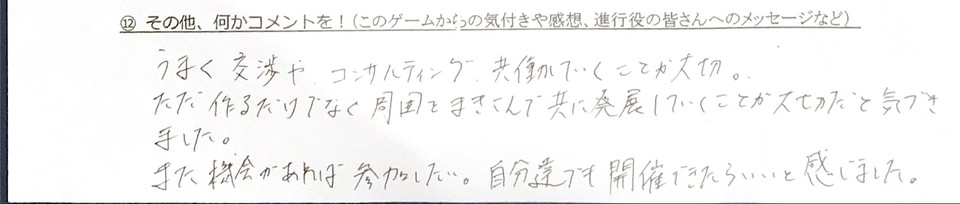 ⑫ その他、何かコメントを！（このゲームからの気付きや感想、進行役の皆さんへのメッセージなど）
うまく交渉や、コンサルティング、共働していくことが大切。
ただ作るだけでなく周囲をまきこんで共に発展していくことが大切だと気づき
ました。
また機会があれば参加したい。自分達でも開催できたらいいと感じました。